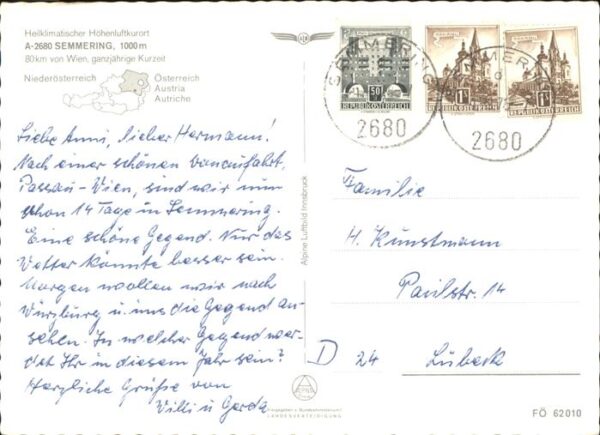 Heilklimatischer Höhenluftkurort
A-2680 SEMMERING, 1000 m
80 km von Wien, ganzjährige Kurzeit
Niederösterreich
Österreich
Austria
Autriche
Liebe Anni, lieber Hermann!
Nach einer schönen Donaufahrt,
Passau-Wien, sind wir nun
schon 14 Tage in Semmering.
Eine schöne Gegend. Nur das
Wetter könnte besser sein.
Morgen wollen wir nach
Würzburg u. uns die Gegend an-
sehen. In welcher Gegend wer-
det Ihr in diesem Jahr sein?
Herzliche Grüße von
Willi u Gerda
Alpine Luftbild Innsbruck
50 g
REPUBLIK ÖSTERREICH
1 S
REPUBLIK ÖSTERREICH
1 S
REPUBLIK ÖSTERREICH
SEMMERING
2680
SEMMERING
2680
Familie
H. Künstmann
Paulstr. 14
D 24 Lübeck
ALPINE
LANDESVERTEIDIGUNG
FÖ 62010